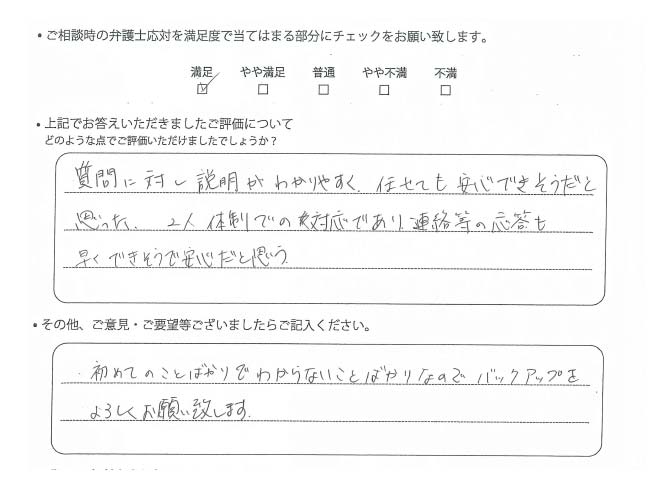 ・ご相談時の弁護士応対を満足度で当てはまる部分にチェックをお願い致します。
満足 やや満足 普通 やや不満 不満
☑ □ □ □ □
・上記でお答えいただきましたご評価について
どのような点でご評価いただけましたでしょうか?
質問に対し説明がわかりやすく、任せても安心できそうだと
思った。2人体制での対応であり、連絡等の応答も
早くできそうで安心だと思う。
・その他、ご意見・ご要望等ございましたらご記入ください。
初めてのことばかりでわからないことばかりなのでバックアップを
よろしくお願い致します。